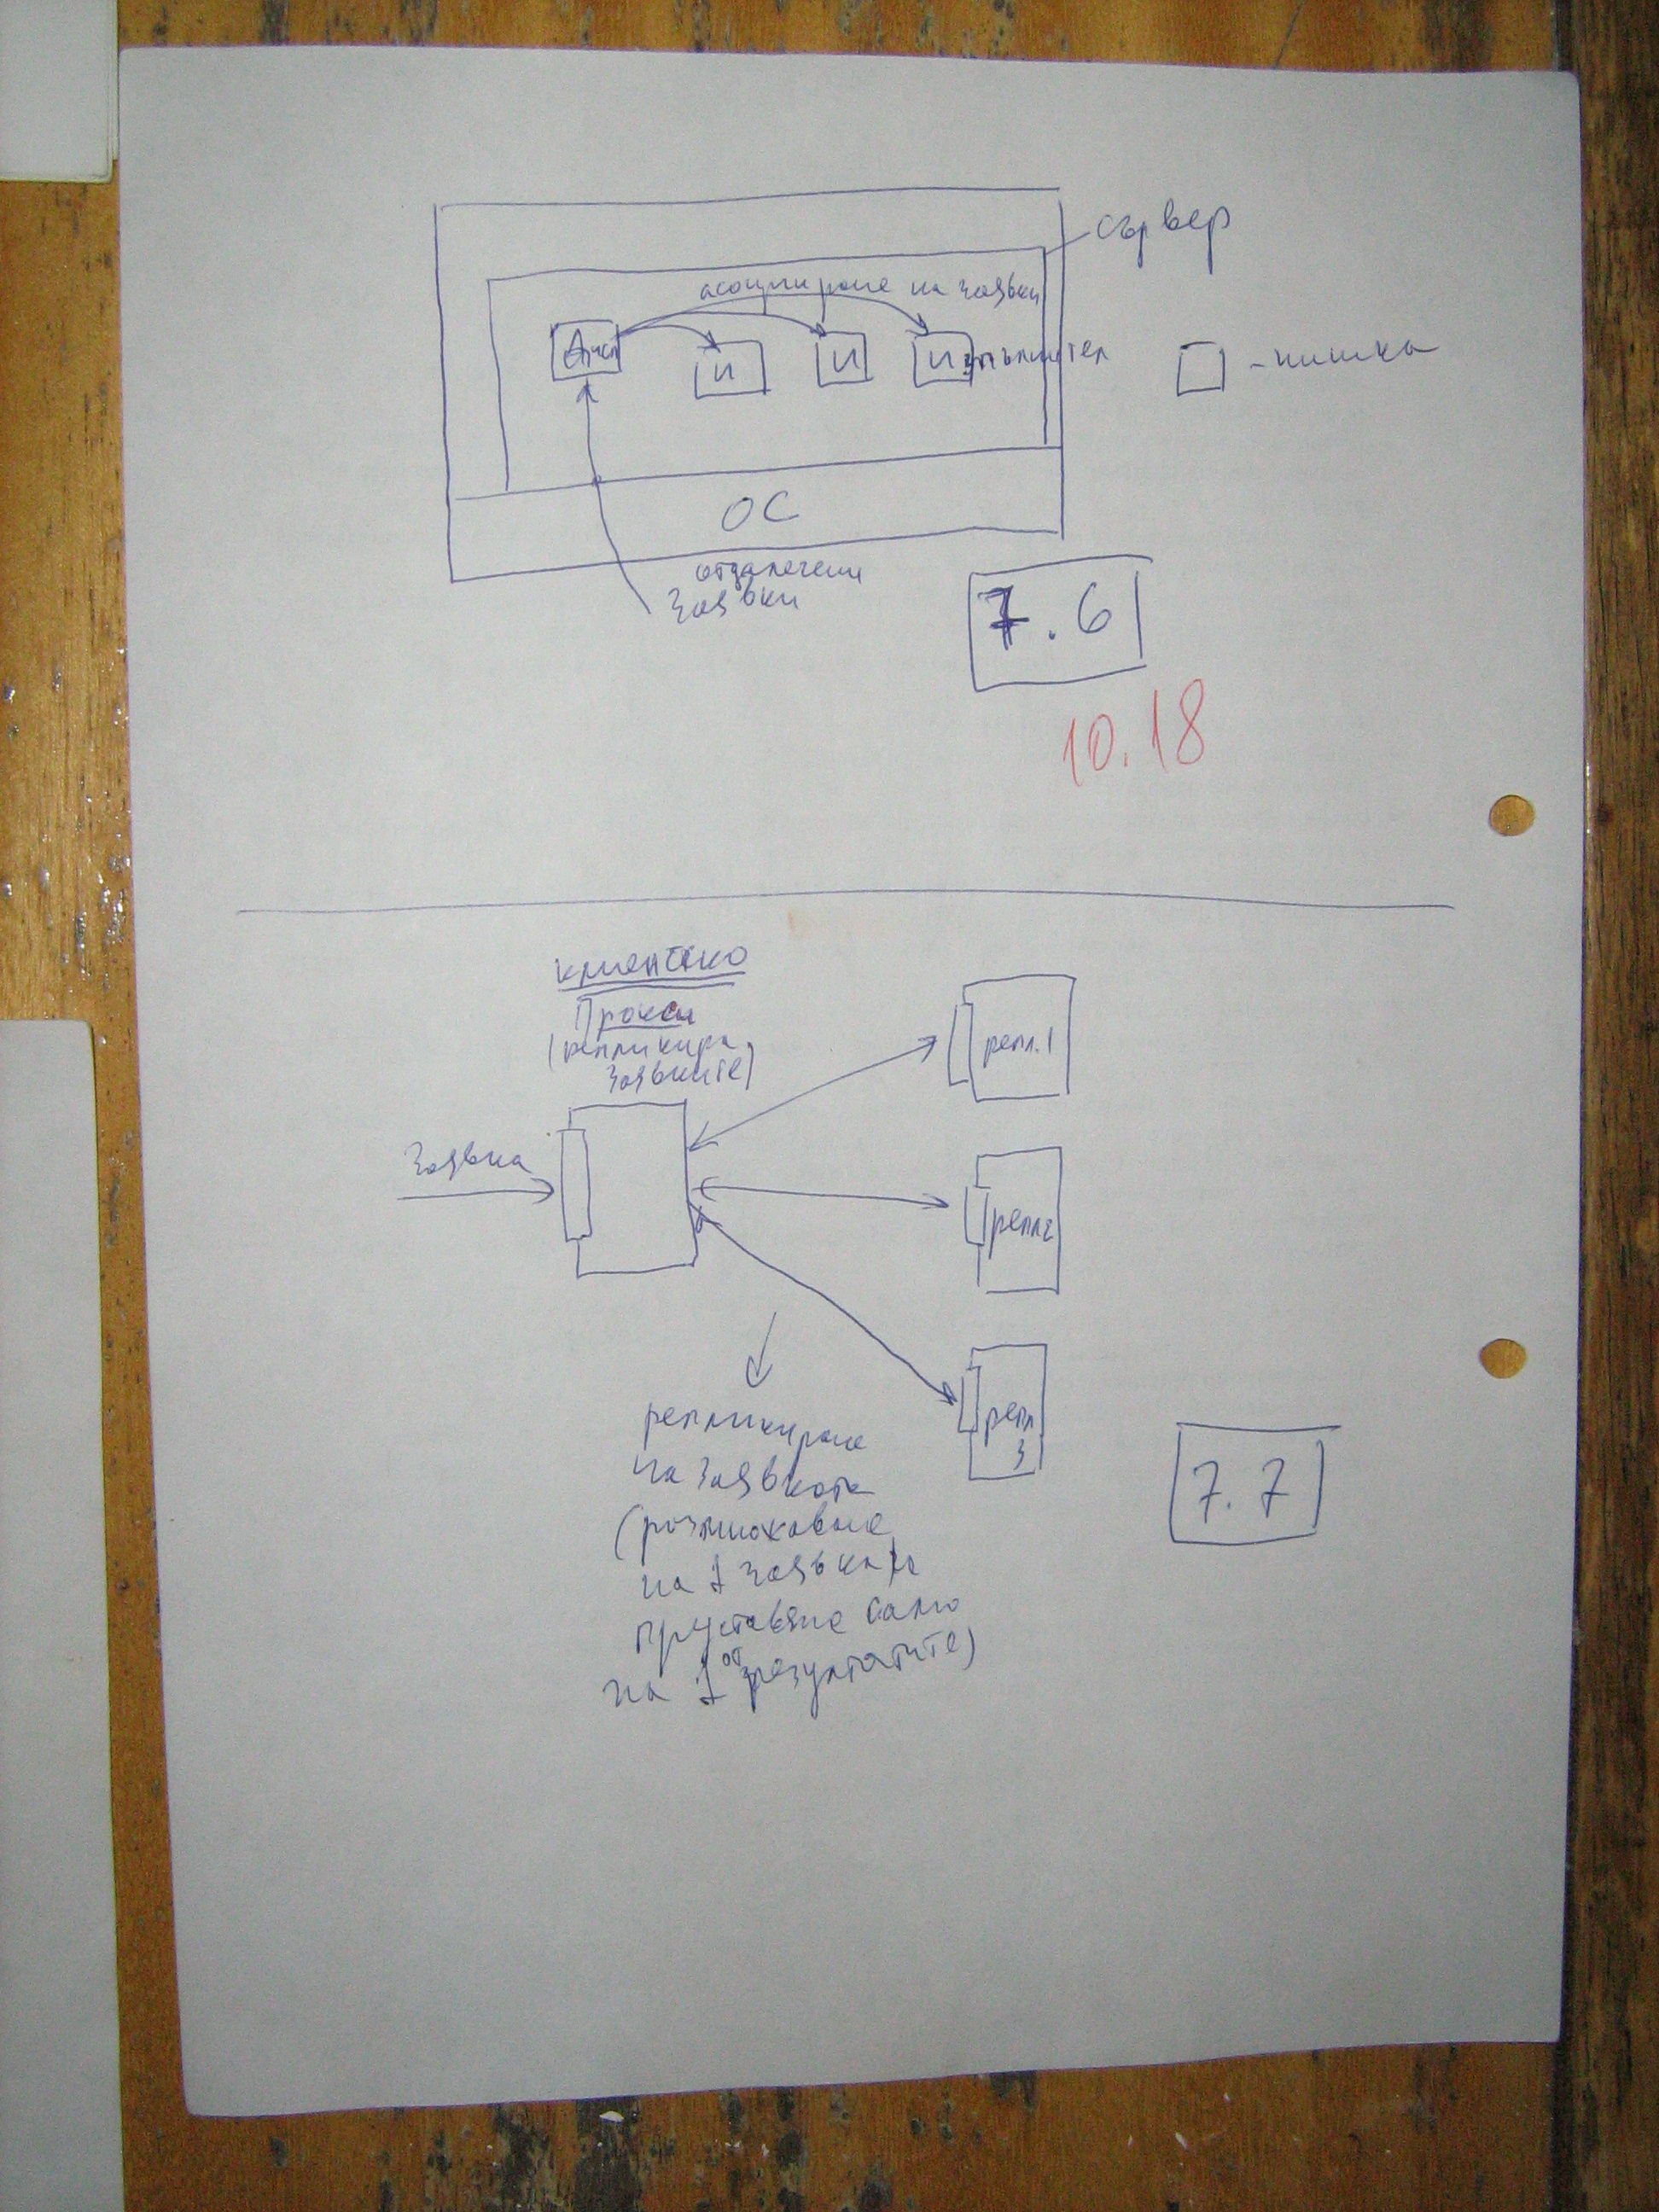 сървер
асоцииране на заявки
Дисп
И
И
Изпълнител
- нишка
ОС
отдалечени
заявки
7.6
10.18
клиентско
Прокси
(репликира
заявките)
заявка
репл.1
репл2
репл
3
репликиране
на заявката
(размножаване
на 1 заявка и
представяне само
на 1 от резултатите)
7.7